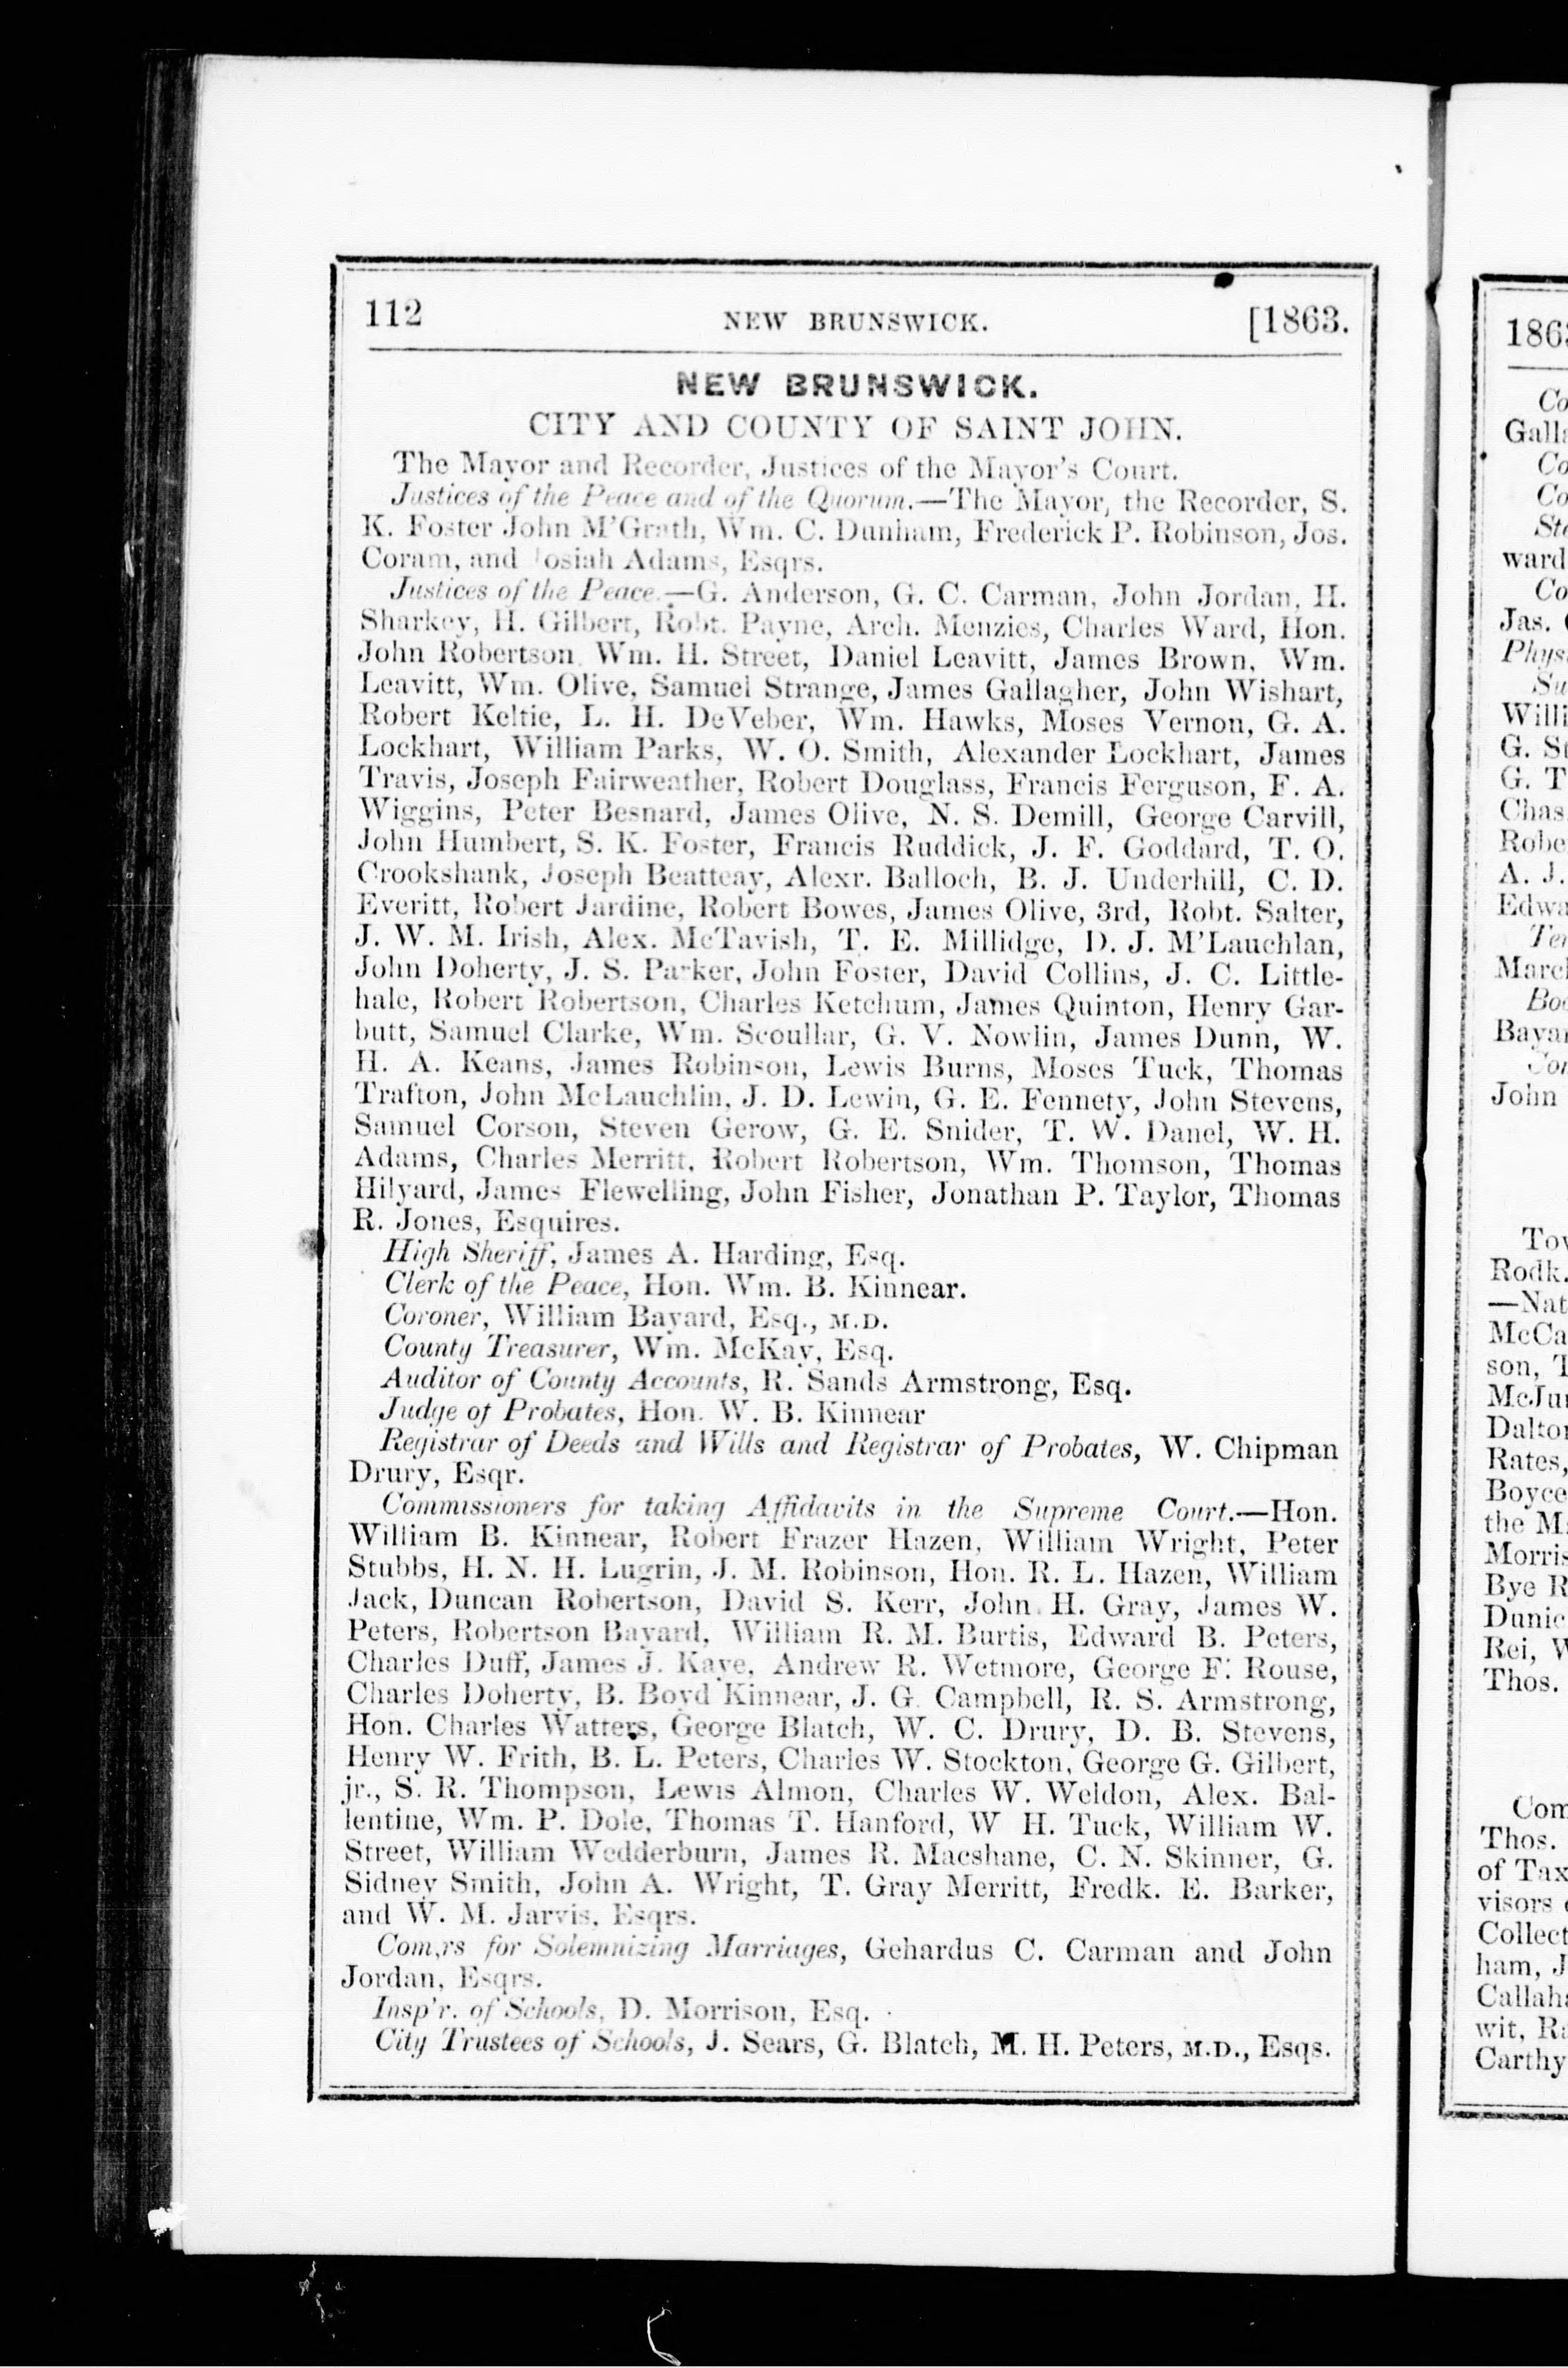 112 NEW BRUNSWICK. [1863.
NEW BRUNSWICK.
CITY AND COUNTY OF SAINT JOHN.
The Mayor and Recorder, Justices of the Mayor's Court.
Justices of the Peace and of the Quorum.—The Mayor, the Recorder, S.
K. Foster John M'Grath, Wm. C. Dunham, Frederick P. Robinson, Jos.
Coram, and Josiah Adams, Esqrs.
Justices of the Peace.—G. Anderson, G. C. Carman, John Jordan, H.
Sharkey, H. Gilbert, Robt. Payne, Arch. Menzies, Charles Ward, Hon.
John Robertson Wm. H. Street, Daniel Leavitt, James Brown, Wm.
Leavitt, Wm. Olive, Samuel Strange, James Gallagher, John Wishart,
Robert Keltie, L. H. DeVeber, Wm. Hawks, Moses Vernon, G. A.
Lockhart, William Parks, W. O. Smith, Alexander Lockhart, James
Travis, Joseph Fairweather, Robert Douglass, Francis Ferguson, F. A.
Wiggins, Peter Besnard, James Olive, N. S. Demill, George Carvill,
John Humbert, S. K. Foster, Francis Ruddick, J. F. Goddard, T. O.
Crookshank, Joseph Beatteay, Alexr. Balloch, B. J. Underhill, C. D.
Everitt, Robert Jardine, Robert Bowes, James Olive, 3rd, Robt. Salter,
J. W. M. Irish, Alex. McTavish, T. E. Millidge, D. J. M'Lauchlan,
John Doherty, J. S. Parker, John Foster, David Collins, J. C. Little-
hale, Robert Robertson, Charles Ketchum, James Quinton, Henry Gar-
butt, Samuel Clarke, Wm. Scoullar, G. V. Nowlin, James Dunn, W.
H. A. Keans, James Robinson, Lewis Burns, Moses Tuck, Thomas
Trafton, John McLauchlin, J. D. Lewin, G. E. Fennety, John Stevens,
Samuel Corson, Steven Gerow, G. E. Snider, T. W. Danel, W. H.
Adams, Charles Merritt, Robert Robertson, Wm. Thomson, Thomas
Hilyard, James Flewelling, John Fisher, Jonathan P. Taylor, Thomas
R. Jones, Esquires.
High Sheriff, James A. Harding, Esq.
Clerk of the Peace, Hon. Wm. B. Kinnear.
Coroner, William Bayard, Esq., M.D.
County Treasurer, Wm. McKay, Esq.
Auditor of County Accounts, R. Sands Armstrong, Esq.
Judge of Probates, Hon. W. B. Kinnear
Registrar of Deeds and Wills and Registrar of Probates, W. Chipman
Drury, Esqr.
Commissioners for taking Affidavits in the Supreme Court.—Hon.
William B. Kinnear, Robert Frazer Hazen, William Wright, Peter
Stubbs, H. N. H. Lugrin, J. M. Robinson, Hon. R. L. Hazen, William
Jack, Duncan Robertson, David S. Kerr, John H. Gray, James W.
Peters, Robertson Bayard, William R. M. Burtis, Edward B. Peters,
Charles Duff, James J. Kaye, Andrew R. Wetmore, George F. Rouse,
Charles Doherty, B. Boyd Kinnear, J. G. Campbell, R. S. Armstrong,
Hon. Charles Watters, George Blatch, W. C. Drury, D. B. Stevens,
Henry W. Frith, B. L. Peters, Charles W. Stockton, George G. Gilbert,
jr., S. R. Thompson, Lewis Almon, Charles W. Weldon, Alex. Bal-
lentine, Wm. P. Dole, Thomas T. Hanford, W H. Tuck, William W.
Street, William Wedderburn, James R. Macshane, C. N. Skinner, G.
Sidney Smith, John A. Wright, T. Gray Merritt, Fredk. E. Barker,
and W. M. Jarvis, Esqrs.
Com,rs for Solemnizing Marriages, Gehardus C. Carman and John
Jordan, Esqrs.
Insp'r. of Schools, D. Morrison, Esq.
City Trustees of Schools, J. Sears, G. Blatch, M. H. Peters, M.D., Esqs.
186
Co
Gall
Co
Co
Ste
ward
Co
Jas.
Phys
Su
Willi
G. St
G. T
Chas
Robe
A. J.
Edwa
Ter
Marc
Boa
Baya
Con
John
Tov
Rodk.
—Nat
McCa
son, T
McJu
Dalto
Rates,
Boyce
the M
Morris
Bye R
Dunic
Rei, W
Thos.
Com
Thos.
of Tax
visors
Collect
ham, J
Callah
wit, Ra
Carthy